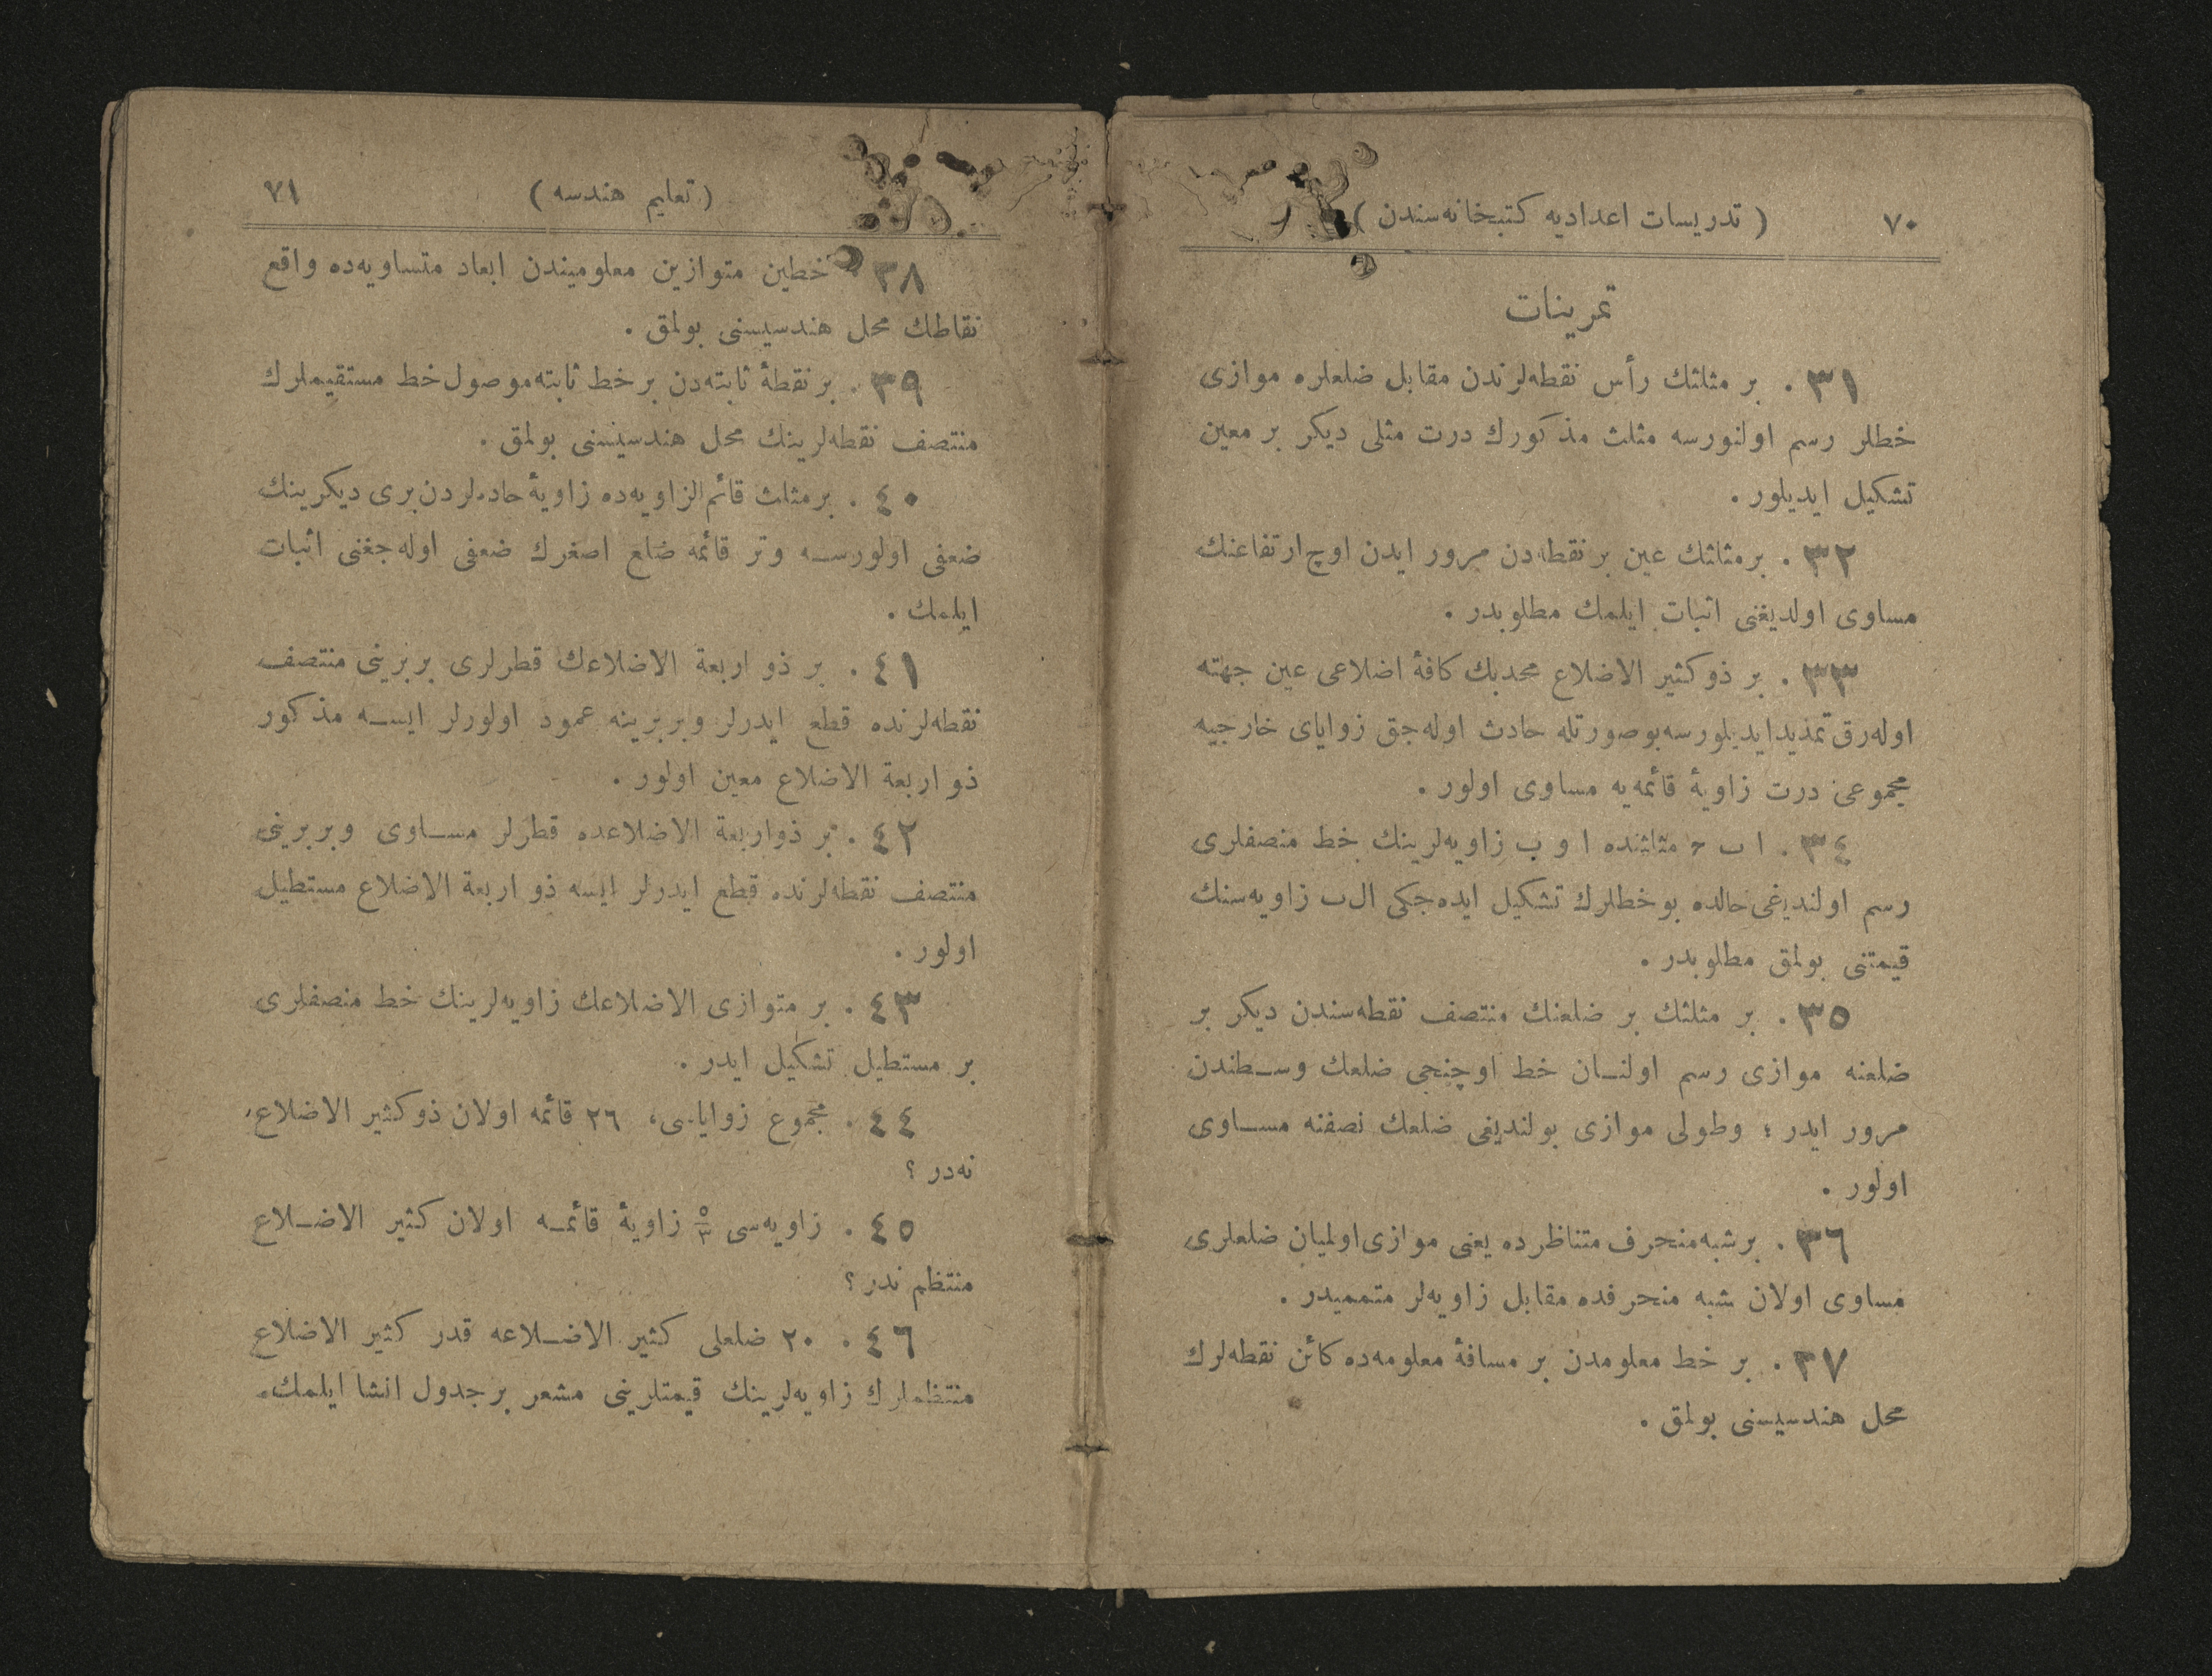 ٧٠ ( تدريسات اعداديه كتبخانه‌سندن )
تمرينات
٣١ . بر مثلثك رأس نقطه‌لرندن مقابل ضلعلره موازى
خطلر رسم اولنورسه مثلث مذكورك درت مثلى ديكر بر معين
تشكيل ايديلور .
٣٢ . برمثلثك عين برنقطه‌دن مرور ايدن اوچ ارتفاعنك
مساوى اولديغنى اثبات ايلمك مطلوبدر .
٣٣ . بر ذوكثير الاضلاع محدبك كافهٔ اضلاعى عين جهته
اوله‌رق تمديد ايديلورسه بوصورتله حادث اوله‌جق زواياى خارجيه
مجموعى درت زاويهٔ قائمه‌يه مساوى اولور .
٣٤ . ا ب ح مثلثنده ا و ب زاويه‌لرينك خط منصفلرى
رسم اولنديغى حالده بوخطلرك تشكيل ايده‌جكى ال‌ب زاويه‌سنك
قيمتنى بولمق مطلوبدر .
٣٥ . بر مثلثك بر ضلعنك منتصف نقطه‌سندن ديكر بر
ضلعنه موازى رسم اولنـان خط اوچنجى ضلعك وسـطندن
مرور ايدر ؛ وطولى موازى بولنديغى ضلعك نصفنه مسـاوى
اولور .
٣٦ . برشبه‌منحرف متناظرده يعنى موازى‌اولميان ضلعلرى
مساوى اولان شبه منحرفده مقابل زاويه‌لر متمميدر .
٣٧ . بر خط معلومدن بر مسافهٔ معلومه‌ده كائن نقطه‌لرك
محل هندسيسنى بولمق .
( تعليم هندسه ) ٧١
٣٨ خطين متوازين معلوميندن ابعاد متساويه‌ده واقع
نقاطك محل هندسيسنى بولمق .
٣٩ . برنقطهٔ ثابته‌دن برخط ثابته‌موصول خط مستقيملرك
منتصف نقطه‌لرينك محل هندسيسنى بولمق .
٤٠ . برمثلث قائم‌الزاويه‌ده زاويهٔ حاده‌لردن برى ديكرينك
ضعفى اولورسـه وتر قائمه ضلع اصغرك ضعفى اوله‌جغنى اثبات
ايلمك .
٤١ . بر ذو اربعة الاضلاعك قطرلرى بربرينى منتصف
نقطه‌لرنده قطع ايدرلر وبربرينه عمود اولورلر ايسـه مذكور
ذو اربعة الاضلاع معين اولور .
٤٢ . بر ذواربعة الاضلاعده قطرلر مسـاوى وبربرينى
منتصف نقطه‌لرنده قطع ايدرلر ايسه ذو اربعة الاضلاع مستطيل
اولور .
٤٣ . بر متوازى الاضلاعك زاويه‌لرينك خط منصفلرى
بر مستطيل تشكيل ايدر .
٤٤ . مجموع زواياسى ، ٢٦ قائمه اولان ذوكثير الاضلاع
نه‌در ؟
٤٥ . زاويه‌سى ٥/٣ زاويهٔ قائمـه اولان كثير الاضـلاع
منتظم ندر ؟
٤٦ . ٢٠ ضلعلى كثير الاضـلاعه قدر كثير الاضلاع
منتظملرك زاويه‌لرينك قيمتلرينى مشعر برجدول انشا ايلمك .